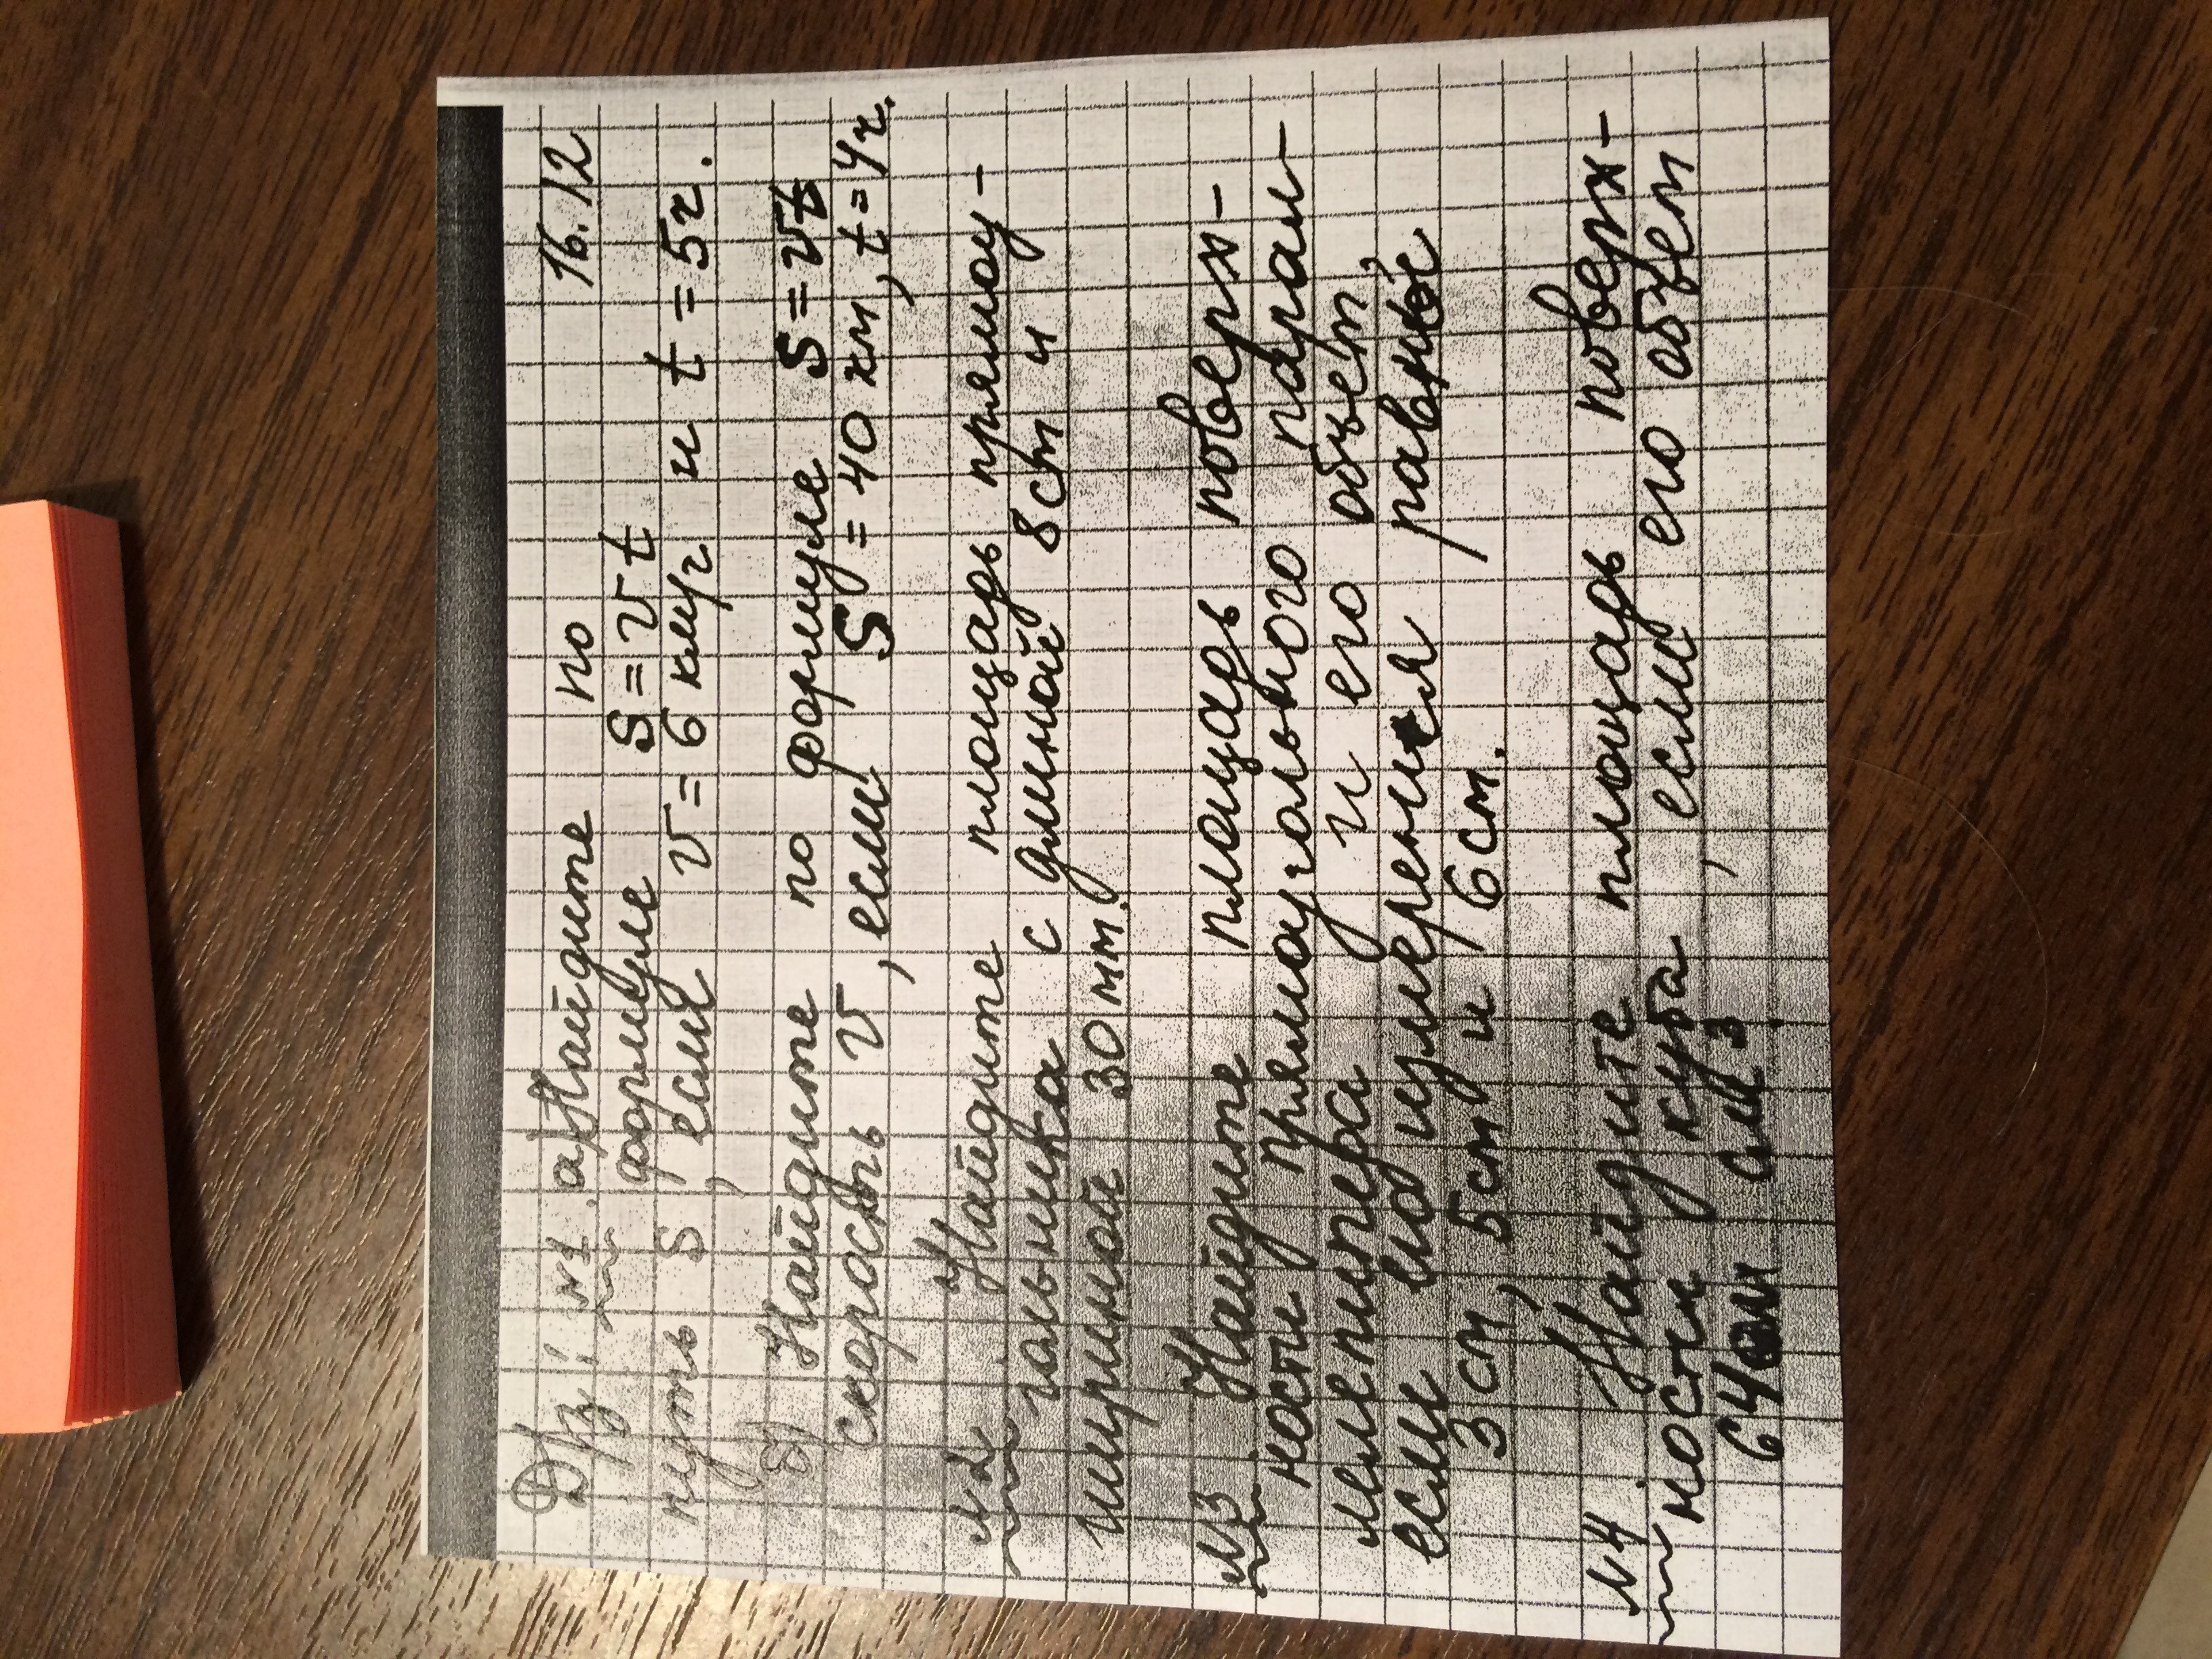 Д/з: №1. а) Найдите по 16.12
формуле S = v t
путь S, если v = 6 км/ч и t = 5ч.
б) Найдите по формуле S = vt
скорость v, если S = 40 км, t = 4ч.
№2 Найдите площадь прямоу-
гольника с длиной 8см и
шириной 30 мм.
№3 Найдите площадь поверх-
ности прямоугольного парал-
лелепипеда и его объем,
если его измерения равны
3 см, 5 см и 6 см.
№4. Найдите площадь поверх-
ности куба, если его объем
64 см3.